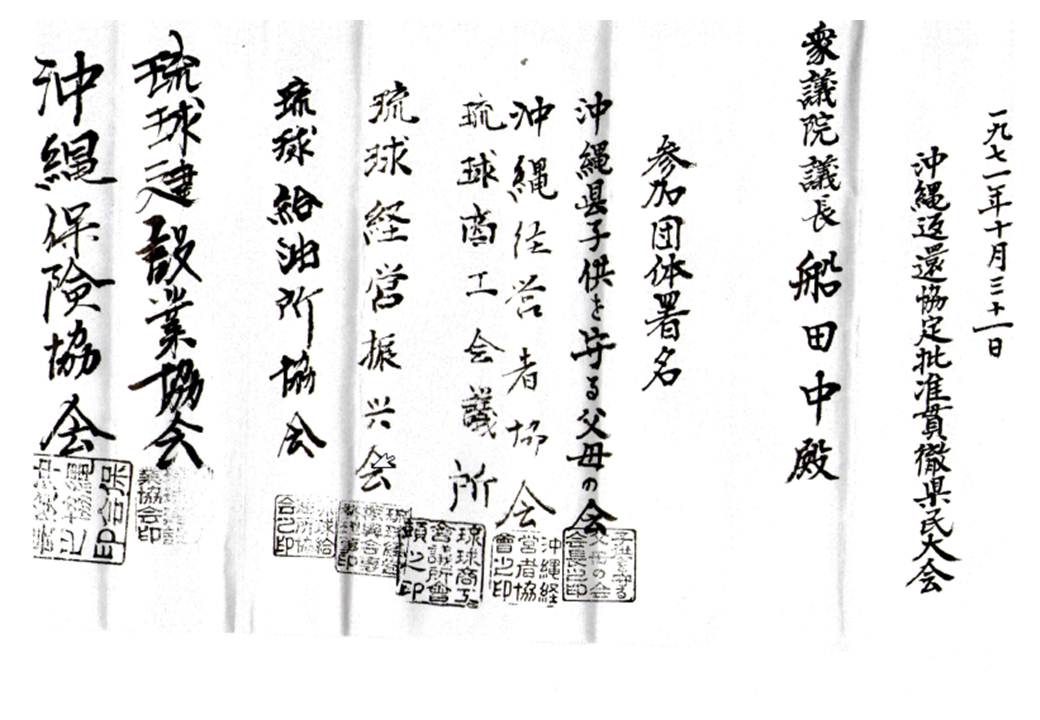 一九七一年十月三十一日
沖縄返還協定批准貫徹県民大会
衆議院議長 船田中殿
参加団体署名
沖縄県子供を守る父母の会
子供を守る
父母の会
会長之印
沖縄経営者協会
沖縄経
営者協
會之印
琉球商工会議所
琉球商工
會議所會
頭之印
琉球経営振兴会
琉球給油所協会
琉球給
油所協
会之印
琉球建設業協会
業協会印
沖縄保険協会